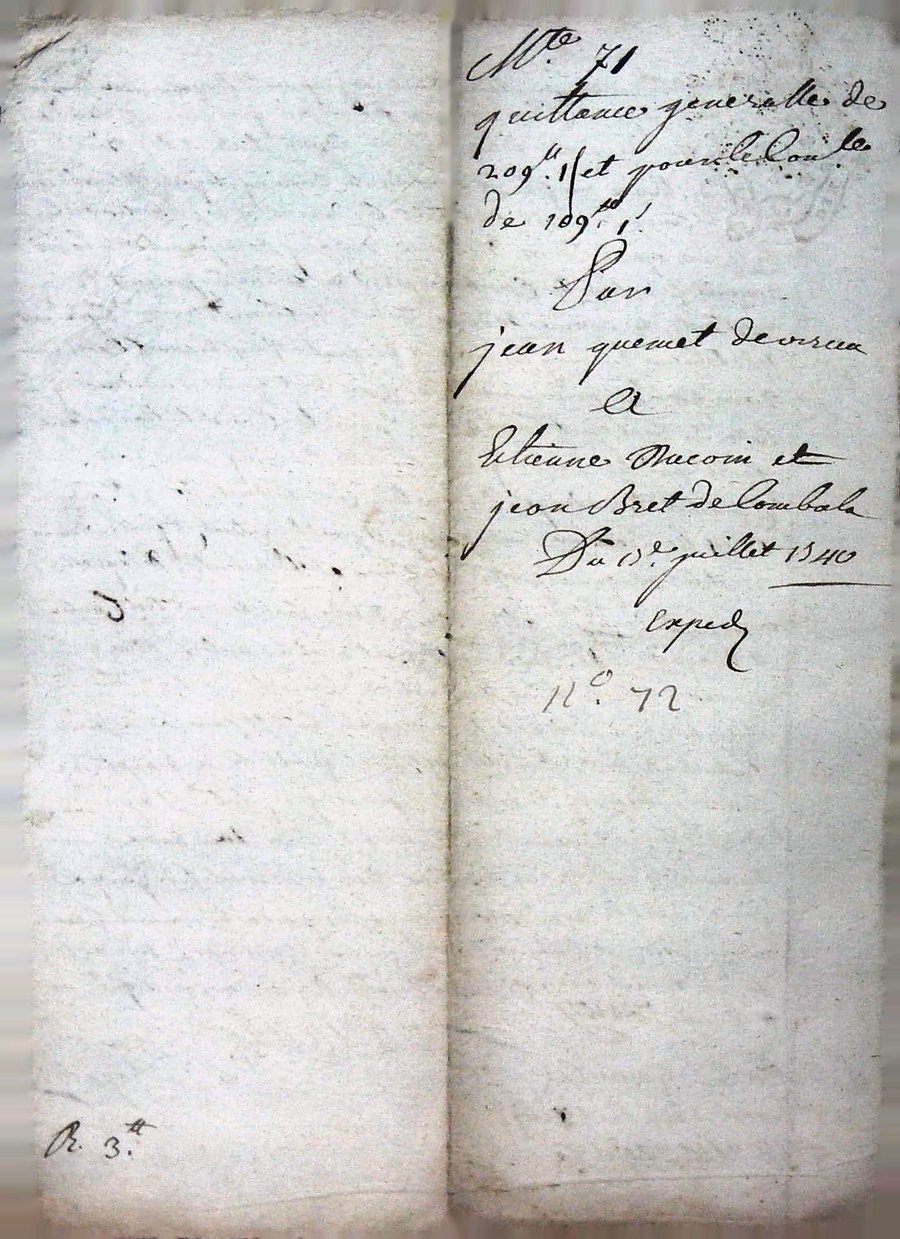 Mte. 71
quittance generalle de
209tt. 1s et pour le Con.le
de 109tt. 1s.
Par
jean quemet
A
Etienne Macoin et
jean Bret de Combala
Du 13e juillet 1540
exped
n°. 72
R. 3.tt